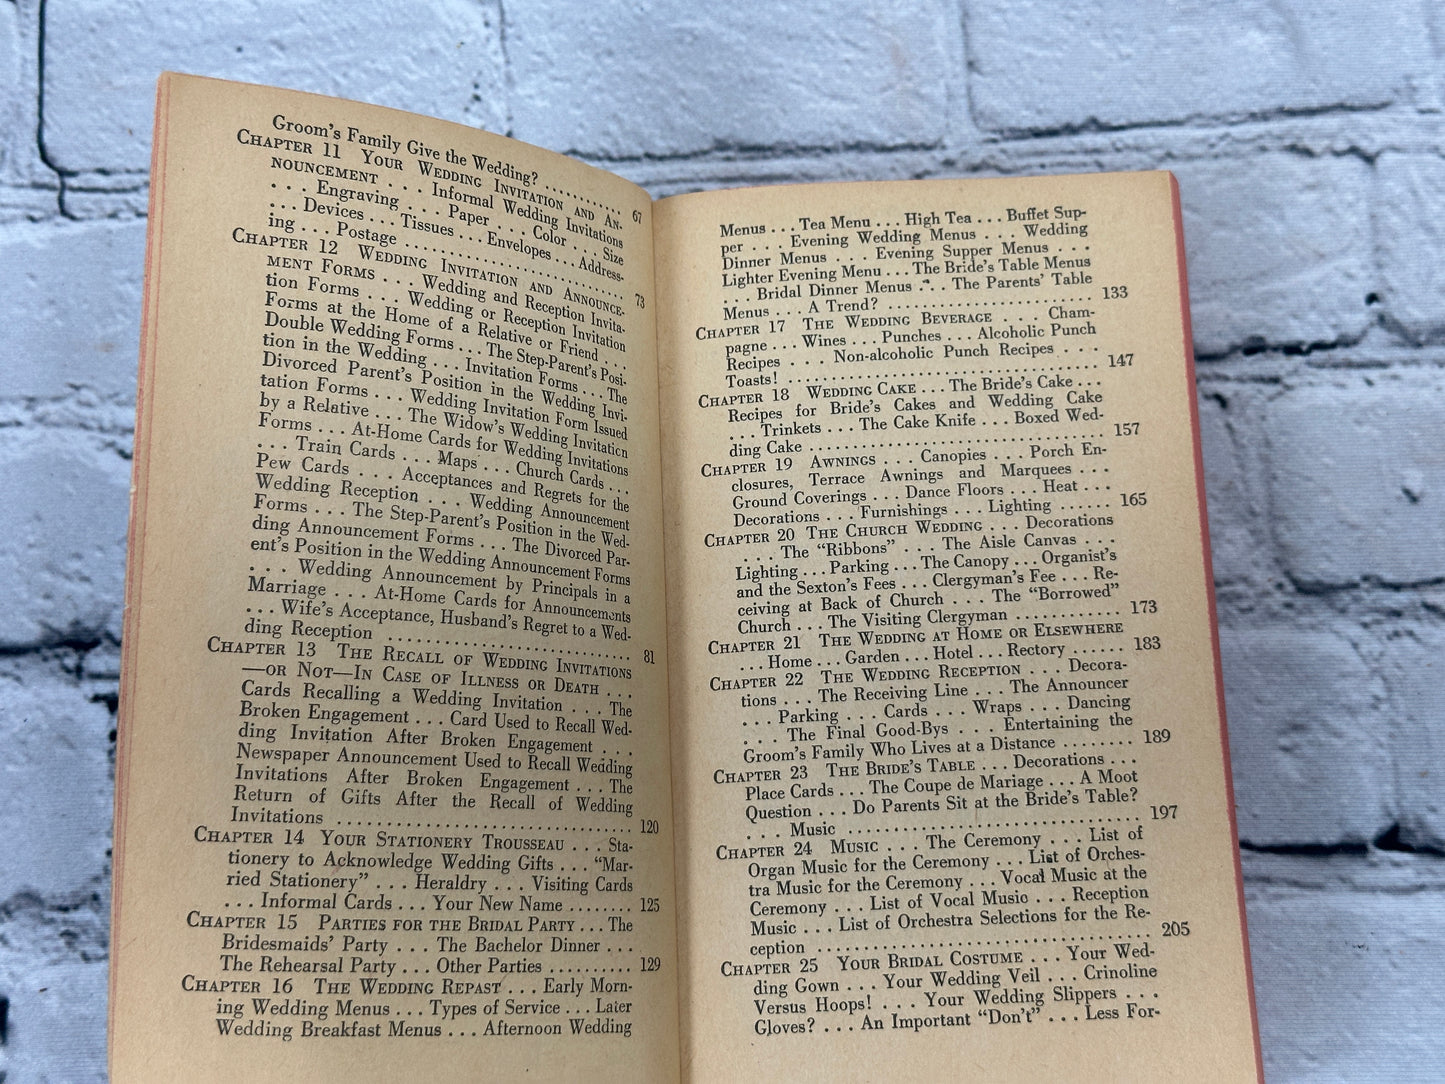 Groom's Family Give the Wedding? ........... 67
CHAPTER 11 YOUR WEDDING INVITATION AND AN-
NOUNCEMENT . . . Informal Wedding Invitations
. . . Engraving . . . Paper . . . Color . . . Size
. . . Devices . . . Tissues . . . Envelopes . . . Address-
ing . . . Postage ........................ 73
CHAPTER 12 WEDDING INVITATION AND ANNOUNCE-
MENT FORMS . . . Wedding and Reception Invita-
tion Forms . . . Wedding or Reception Invitation
Forms at the Home of a Relative or Friend . . .
Double Wedding Forms . . . The Step-Parent's Posi-
tion in the Wedding . . . Invitation Forms . . . The
Divorced Parent's Position in the Wedding Invi-
tation Forms . . . Wedding Invitation Form Issued
by a Relative . . . The Widow's Wedding Invitation
Forms . . . At-Home Cards for Wedding Invitations
. . . Train Cards . . . Maps . . . Church Cards . . .
Pew Cards . . . Acceptances and Regrets for the
Wedding Reception . . . Wedding Announcement
Forms . . . The Step-Parent's Position in the Wed-
ding Announcement Forms . . . The Divorced Par-
ent's Position in the Wedding Announcement Forms
. . . Wedding Announcement by Principals in a
Marriage . . . At-Home Cards for Announcements
. . . Wife's Acceptance, Husband's Regret to a Wed-
ding Reception .......................... 81
CHAPTER 13 THE RECALL OF WEDDING INVITATIONS
—OR NOT—IN CASE OF ILLNESS OR DEATH . . .
Cards Recalling a Wedding Invitation . . . The
Broken Engagement . . . Card Used to Recall Wed-
ding Invitation After Broken Engagement . . .
Newspaper Announcement Used to Recall Wedding
Invitations After Broken Engagement . . . The
Return of Gifts After the Recall of Wedding
Invitations ................................ 120
CHAPTER 14 YOUR STATIONERY TROUSSEAU . . . Sta-
tionery to Acknowledge Wedding Gifts . . . "Mar-
ried Stationery" . . . Heraldry . . . Visiting Cards
. . . Informal Cards . . . Your New Name ........ 125
CHAPTER 15 PARTIES FOR THE BRIDAL PARTY . . . The
Bridesmaids' Party . . . The Bachelor Dinner . . .
The Rehearsal Party . . . Other Parties .......... 129
CHAPTER 16 THE WEDDING REPAST . . . Early Morn-
ing Wedding Menus . . . Types of Service . . . Later
Wedding Breakfast Menus . . . Afternoon Wedding
Menus . . . Tea Menu . . . High Tea . . . Buffet Sup-
per . . . Evening Wedding Menus . . . Wedding
Dinner Menus . . . Evening Supper Menus . . .
Lighter Evening Menu . . . The Bride's Table Menus
. . . Bridal Dinner Menus . . . The Parents' Table
Menus . . . A Trend? ....................... 133
CHAPTER 17 THE WEDDING BEVERAGE . . . Cham-
pagne . . . Wines . . . Punches . . . Alcoholic Punch
Recipes . . . Non-alcoholic Punch Recipes . . .
Toasts! .................................. 147
CHAPTER 18 WEDDING CAKE . . . The Bride's Cake . . .
Recipes for Bride's Cakes and Wedding Cake
. . . Trinkets . . . The Cake Knife . . . Boxed Wed-
ding Cake ................................ 157
CHAPTER 19 AWNINGS . . . Canopies . . . Porch En-
closures, Terrace Awnings and Marquees . . .
Ground Coverings . . . Dance Floors . . . Heat . . .
Decorations . . . Furnishings . . . Lighting ...... 165
CHAPTER 20 THE CHURCH WEDDING . . . Decorations
. . . The "Ribbons" . . . The Aisle Canvas . . .
Lighting . . . Parking . . . The Canopy . . . Organist's
and the Sexton's Fees . . . Clergyman's Fee . . . Re-
ceiving at Back of Church . . . The "Borrowed"
Church . . . The Visiting Clergyman ........... 173
CHAPTER 21 THE WEDDING AT HOME OR ELSEWHERE
. . . Home . . . Garden . . . Hotel . . . Rectory ...... 183
CHAPTER 22 THE WEDDING RECEPTION . . . Decora-
tions . . . The Receiving Line . . . The Announcer
. . . Parking . . . Cards . . . Wraps . . . Dancing
. . . The Final Good-Bys . . . Entertaining the
Groom's Family Who Lives at a Distance ........ 189
CHAPTER 23 THE BRIDE'S TABLE . . . Decorations . . .
Place Cards . . . The Coupe de Mariage . . . A Moot
Question . . . Do Parents Sit at the Bride's Table?
. . . Music ............................... 197
CHAPTER 24 MUSIC . . . The Ceremony . . . List of
Organ Music for the Ceremony . . . List of Orches-
tra Music for the Ceremony . . . Vocal Music at the
Ceremony . . . List of Vocal Music . . . Reception
Music . . . List of Orchestra Selections for the Re-
ception .................................. 205
CHAPTER 25 YOUR BRIDAL COSTUME . . . Your Wed-
ding Gown . . . Your Wedding Veil . . . Crinoline
Versus Hoops! . . . Your Wedding Slippers . . .
Gloves? . . . An Important "Don't" . . . Less For-